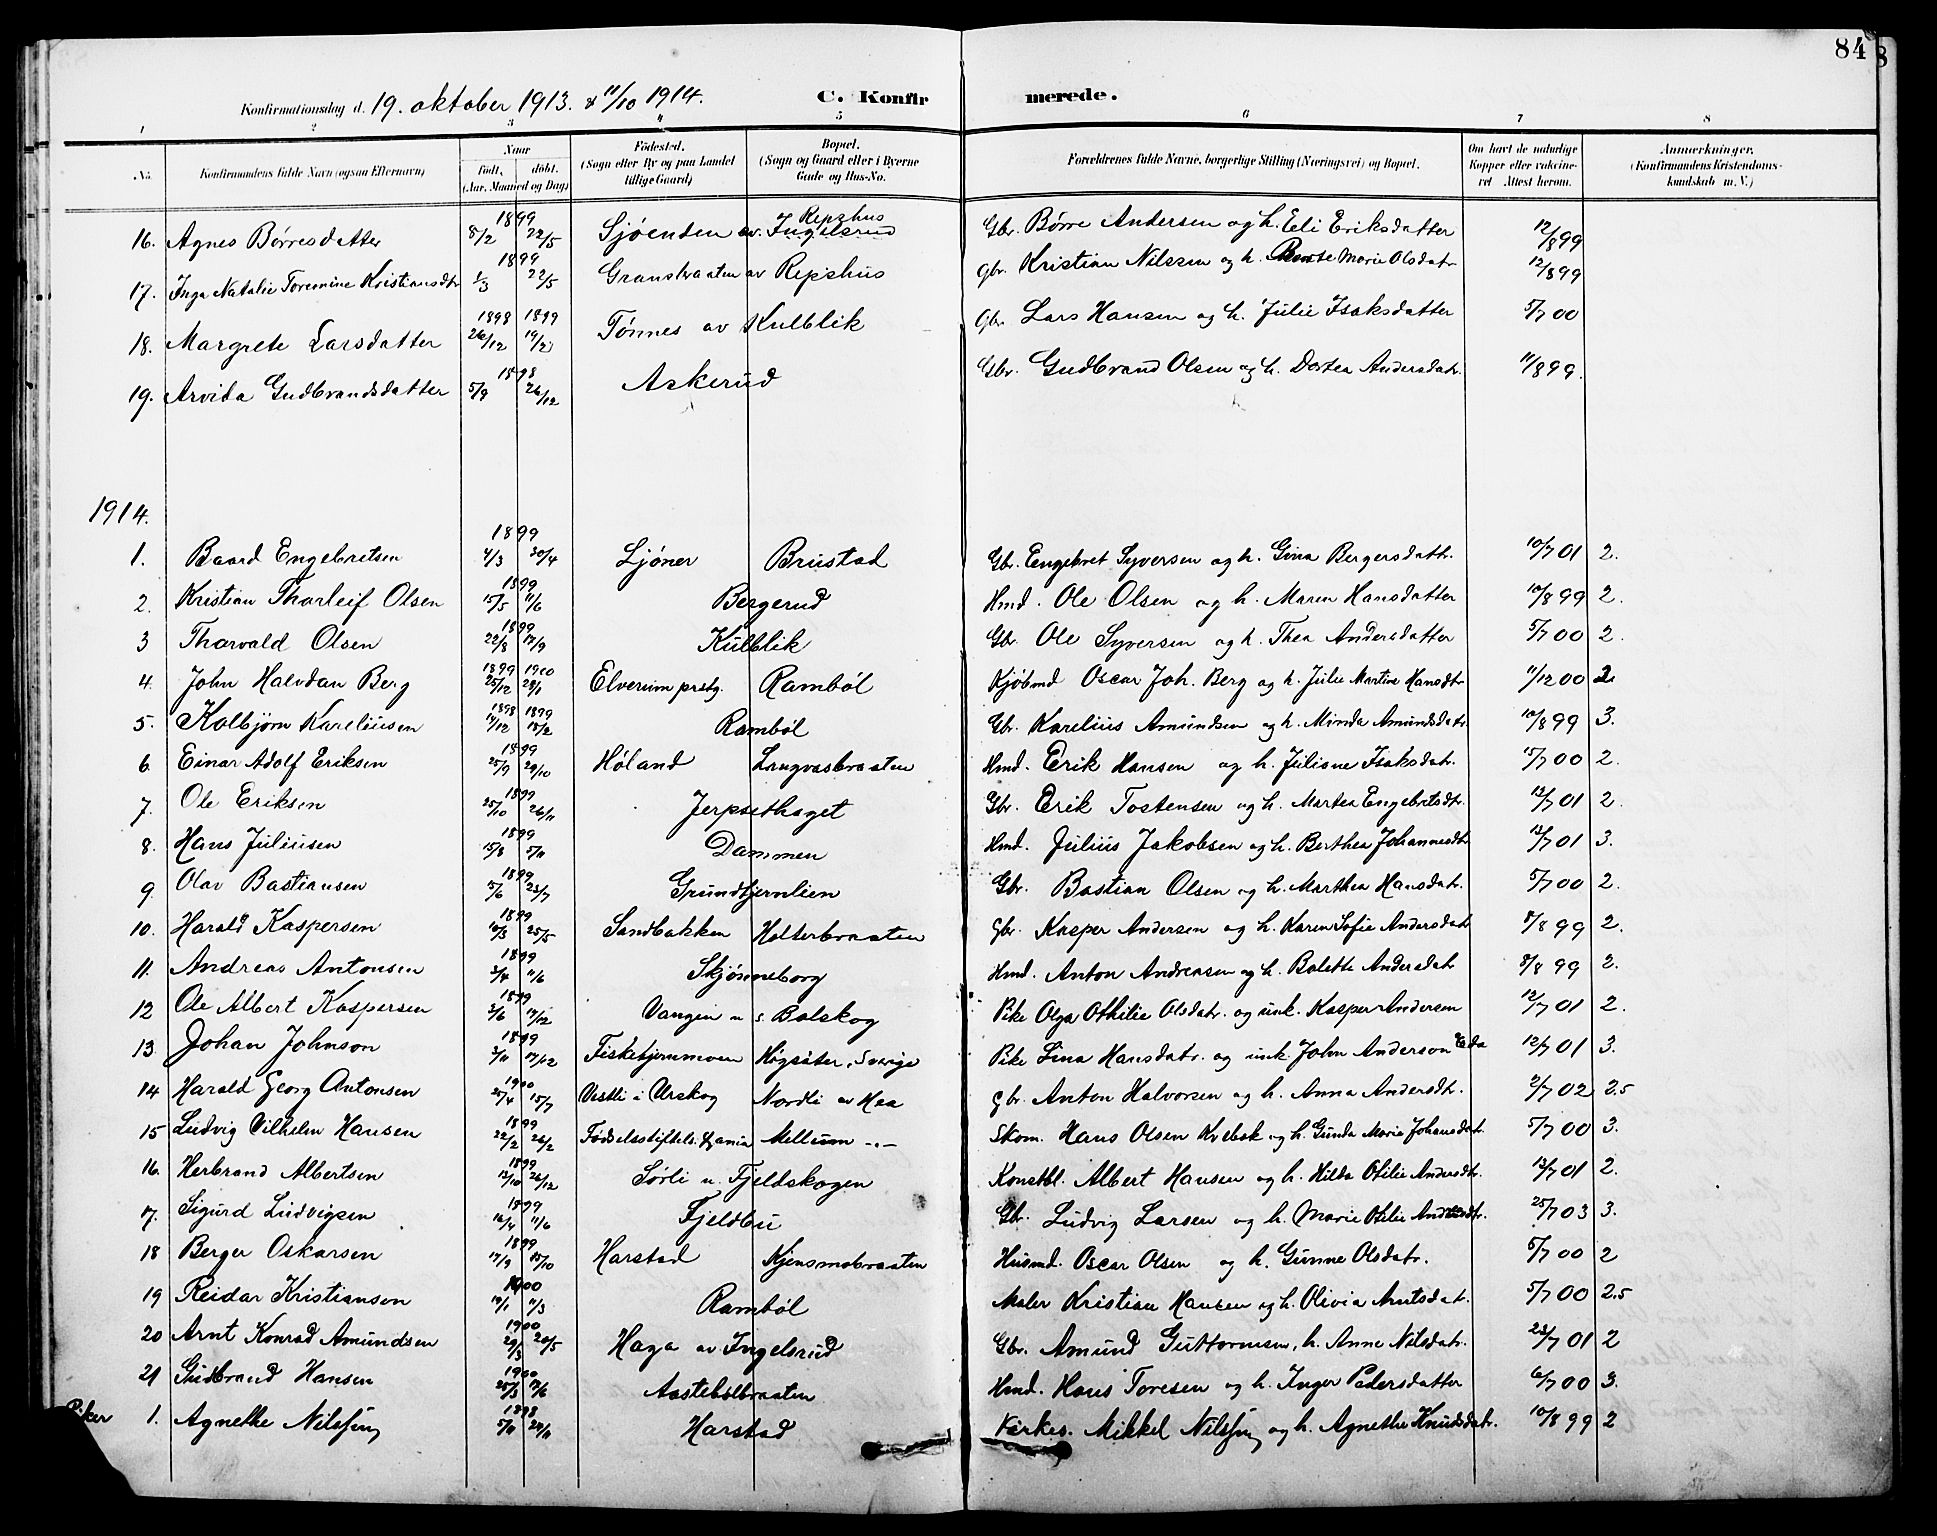 84
8
Konfirmationsdag d. 19. oktober 1913. & 11/10 1914. C. Konfirmerede.
1 2 3 4 5 6 7 8
No. Konfirmandens fulde Navn (ogsaa Efternavn) Naar født, døbt. (Aar, Maaned og Dag) Fødested. (Sogn eller By og paa Landet tillige Gaard) Bopæl. (Sogn og Gaard eller i Byerne Gade og Hus-No. Forældrenes fulde Navne, borgerlige Stilling (Næringsvei) og Bopæl. Om havt de naturlige Kopper eller vaccineret. Attest herom. Anmerkninger. (Konfirmandens Kristendomskundskab m. V.)
16. Agnes Børresdatter 1899 8/2 22/5 Sjøenden av Ingelsrud Repshus Gbr. Børre Andersen og h. Eli Eriksdatter 12/8 99
17. Inga Natalie Toremine Kristiansdtr 1899 1/3 22/5 Granstvaaten av Repshus Gbr. Kristian Nilssen og h. Bente Marie Olsdatr 12/8 99
18. Margrete Larsdatter 1898 1899 26/12 19/2 Tønnes av Kulblik Gbr. Lars Hansen og h. Julie Isaksdatter 5/7 00
19. Arvida Gudbrandsdatter 1898 5/9 26/12 Askerud Gbr. Gudbrand Olsen og h. Dortea Andersdatr. 11/8 99.
1914.
1. Baard Engebretsen 1899 4/3 30/4 Ljøner Brustad Gbr. Engebret Syversen og h. Gina Bergersdattr. 10/7 01 2.
2. Kristian Thorleif Olsen 1899 15/5 11/6 Bergerud Hmd. Ole Olsen og h. Maren Hansdatter 10/8 99 2.
3 Thorvald Olsen 1899 22/8 17/9 Kulblik Gbr. Ole Syversen og h. Thea Andersdatter 5/7 00 2.
4. John Halvdan Berg 1899 1900 25/12 28/1 Elverum prstg. Rambøl Kjøbmd Oscar Joh. Berg og h. Julie Martine Hansdtr 11/12 00 2.
5. Kolbjørn Kareliusen 1898 1899 17/12 18/2 Rambøl Gbr. Karelius Amundsen og h. Minda Amundsdatr. 10/8 99 3.
6. Einar Adolf Eriksen 1899 25/9 29/10 Høland Langvasbraaten Hmd. Erik Hansen og h. Juliane Isaksdatr. 15/7 00 2.
7. Ole Eriksen 1899 25/10 26/11 Jerpsethaget Gbr. Erik Tostensen og h. Martea Engebretsdtr. 12/7 01 2.
8. Hans Juliusen 1899 15/8 5/11 Dammen Hmd. Julius Jakobsen og h. Berthea Johannesdtr 12/7 01 3.
9. Olav Bastiansen 1899 5/6 23/7 Grundtjernlien Gbr. Bastian Olsen og h. Marthea Hansdatr. 5/7 00 2.
10. Harald Kaspersen 1899 10/3 25/5 Sandbakken Holterbraaten Gbr. Kasper Andersen og h. Karen Sofie Andersdatr 8/8 99 2.
11. Andreas Antonsen 1899 3/4 11/6 Skjønneborg Hmd. Anton Andreasen og h. Bolette Andersdatr 8/8 99 2.
12 Ole Albert Kaspersen 1899 3/6 17/12 Vangen u. s. Bolskog Pike Olga Othilie Olsdatr. og unk. Kasper Andersen 12/7 01 2.
13. Johan Johnson 1899 2/11 17/12 Fisketjernmoen Högsäter, Sverige Pike Lina Hansdatr. og unk. John Anderson Eda 12/7 01 3.
14 Harald Georg Antonsen 1900 25/4 15/7 Vestli i Urskog Nordli av Haa Gbr. Anton Halvorsen og h. Anna Andersdtr. 2/7 02 2.5
15 Ludvig Vilhelm Hansen 1899 22/2 26/2 Fødselsstiftels. Xania Mellum -"- Skom. Hans Olsen Kvebæk og h. Gunda Marie Johansdatr. 5/7 00 3.
16. Herbrand Albertsen 1899 12/10 26/12 Sørli u. Fjeldskogen Konstbl. Albert Hansen og h. Hilda Otilie Andersdtr. 12/7 01 2.
17. Sigurd Ludvigsen 1899 16/4 11/6 Fjeldbu Gbr. Ludvig Larsen og h. Marie Otilie Andersdtr. 25/7 03 3.
18 Berger Oskarsen 1899 17/9 15/10 Harstad Kjensmobraaten Husmd. Oscar Olsen og h. Gunne Olsdatr. 5/7 00 2
19 Reidar Kristiansen 1900 14/1 11/3 Rambøl Maler Kristian Hansen og h. Olivia Arntsdatr. 5/7 00 2.5
20 Arnt Konrad Amundsen 1900 29/3 20/5 Haga av Ingelsrud Gbr. Amund Guttormsen, h. Anne Nilsdatr. 23/7 01 2
21 Gudbrand Hansen 1900 25/3 17/6 Aastebølbraaten Hmd. Hans Toresen og h. Inger Pedersdatter 6/7 00 3.
Piker 1. Agnethe Nilssen 1898 5/11 24/11 Harstad Kirkes. Mikkel Nilssen og h. Agnethe Knudsdatr. 10/8 99 2